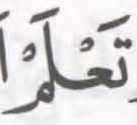 تَعْلَمْ